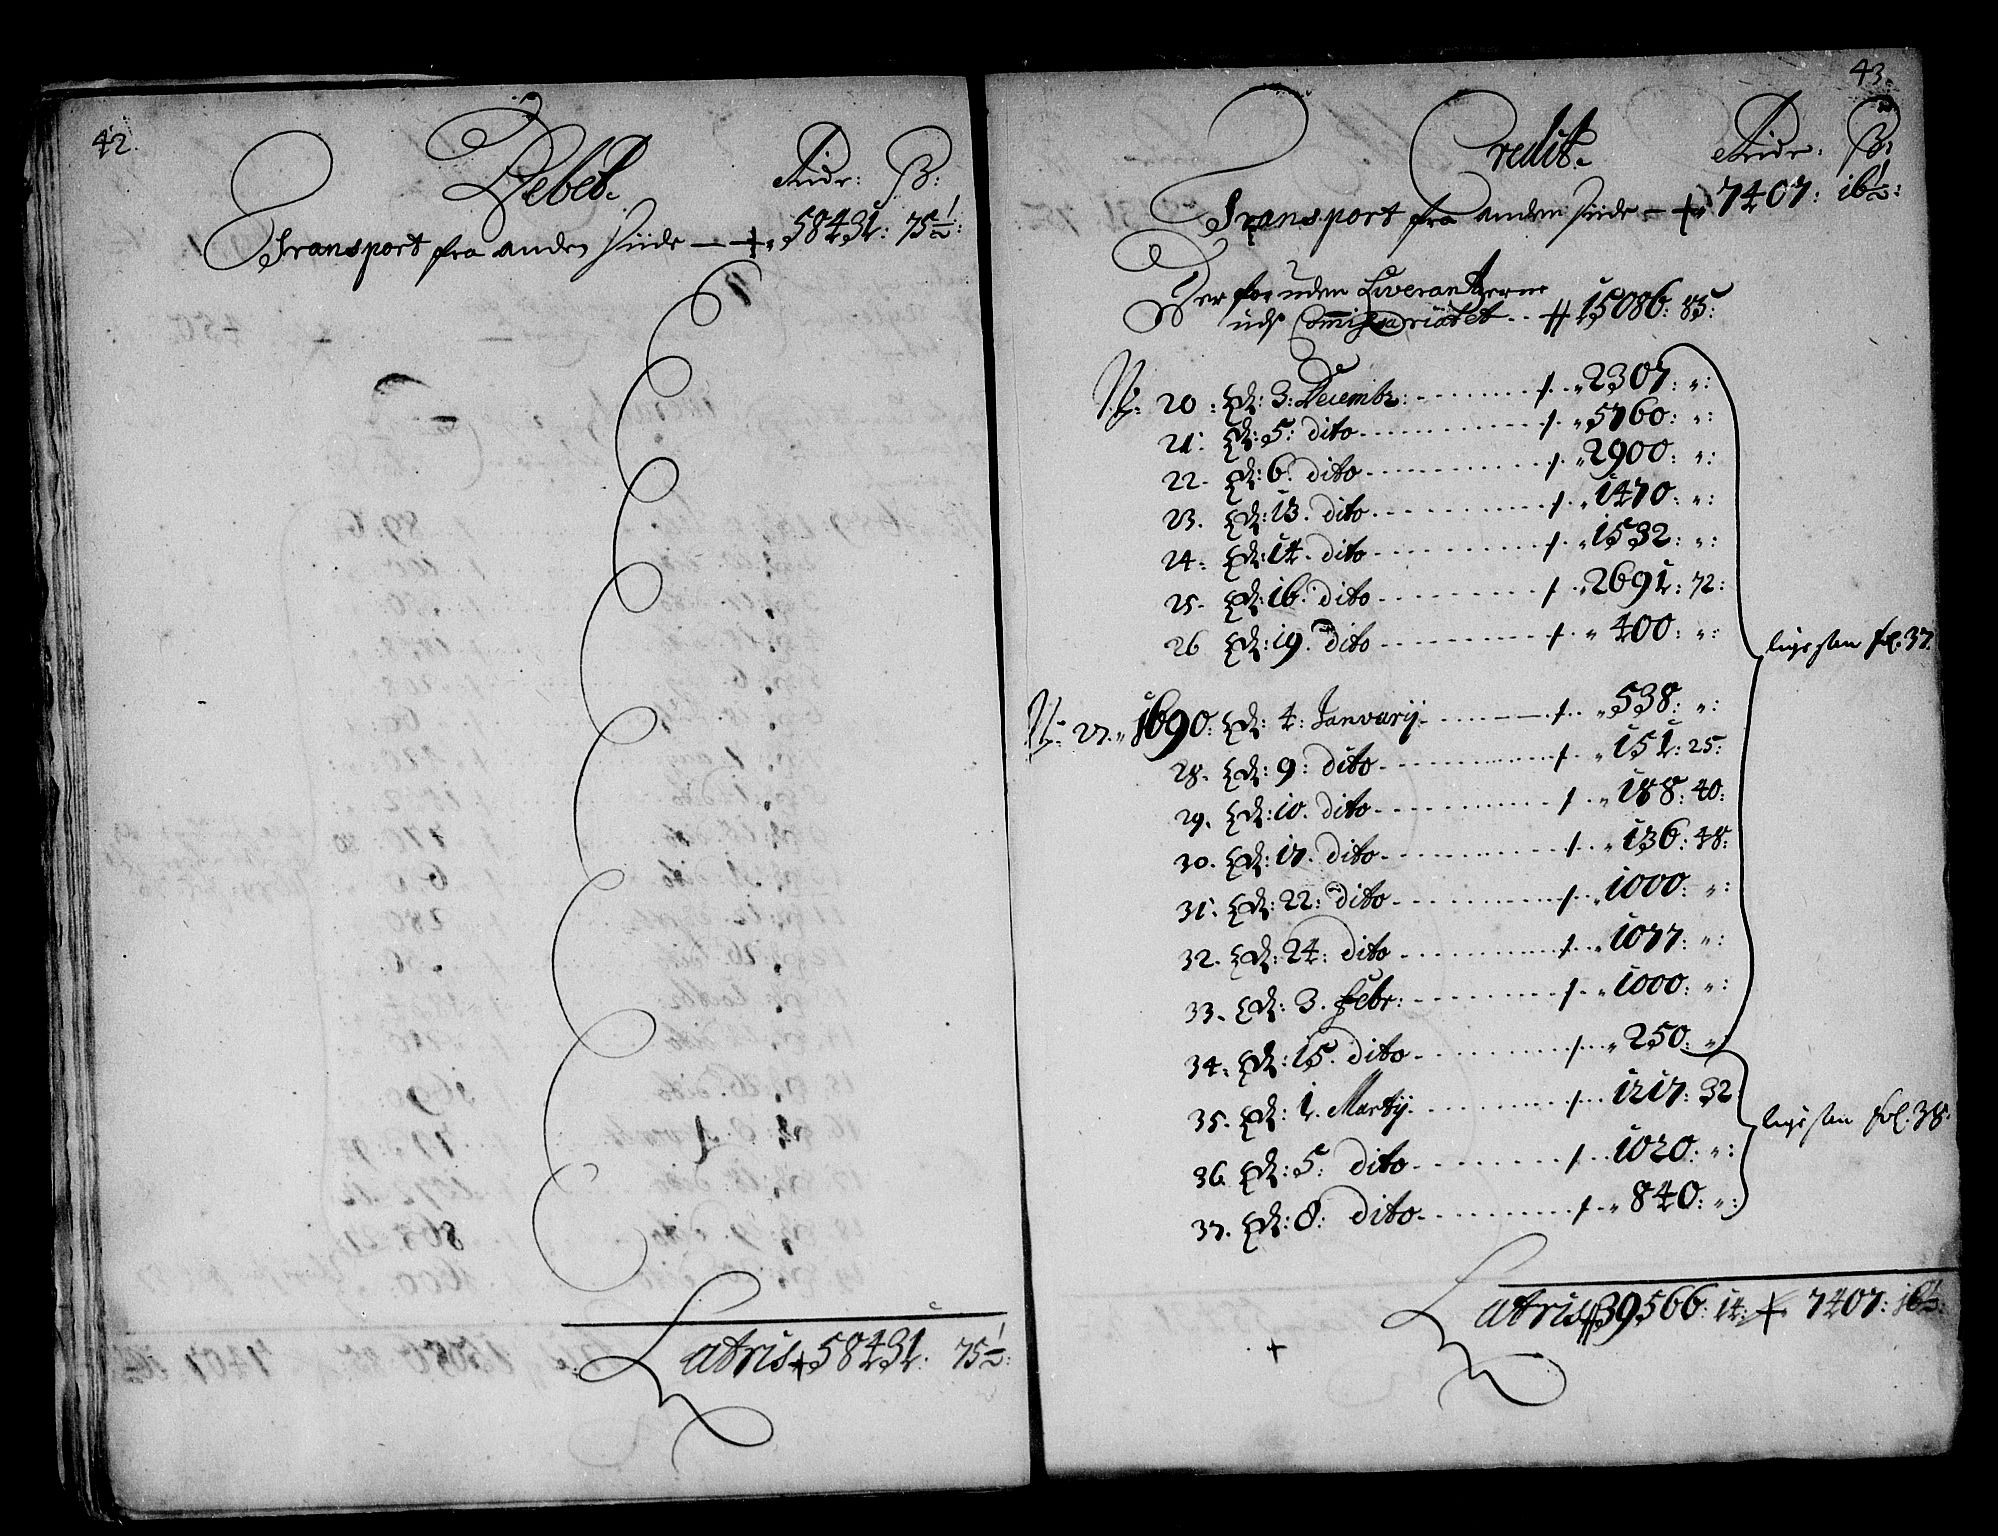 42.
Debet. Rdr: ß:
Transport fra anden siide — + 58431: 75½:
Latris + 58431: 75½:
43.
Credit. Rdr: ß:
Transport fra anden siide — + 7407: 16½:
Der for uden Liverantzerne
uds Commissariatet .. # 15086: 85:
No: 20: Pd: 3: Decembr: 2307: ":
21: Pd: 5: dito 5760: ":
22. Pd: 6. dito 2900: ":
23. Pd: 13. dito 1470: ":
24: Pd: 14. dito 1532: ":
25. Pd: 16. dito 2691: 72:
26 Pd: 19. dito 400: ":
ligesaa fol. 37.
No: 27. 1690: Pd: 4: Januarij 538: ":
28. Pd: 9: dito 151: 25:
29. Pd: 10. dito 188: 40:
30. Pd: 17. dito 136: 48:
31. Pd: 22: dito 1000: ":
32. Pd: 24: dito 1077: ":
33. Pd: 3. Febr: 1000: ":
34. Pd: 15. dito 250: ":
35. Pd: 1. Martij 1217: 32
36 Pd: 5: dito 1020: ":
37. Pd: 8: dito 840: ":
ligesaa fol. 38.
Latris # 39566: 14: + 7407: 16½: